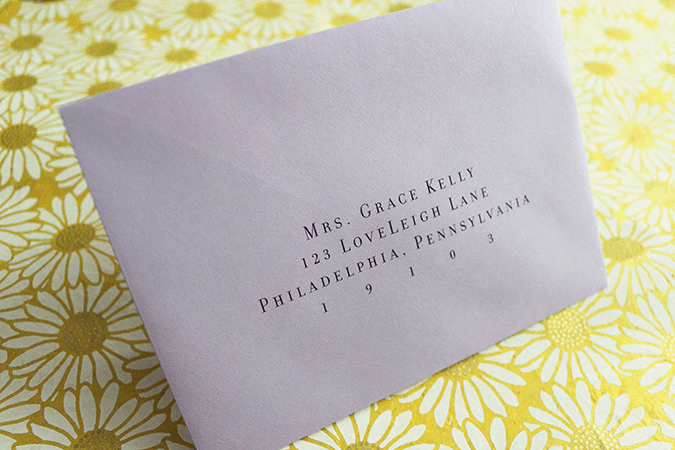 Mrs. Grace Kelly
123 LoveLeigh Lane
Philadelphia, Pennsylvania
19103